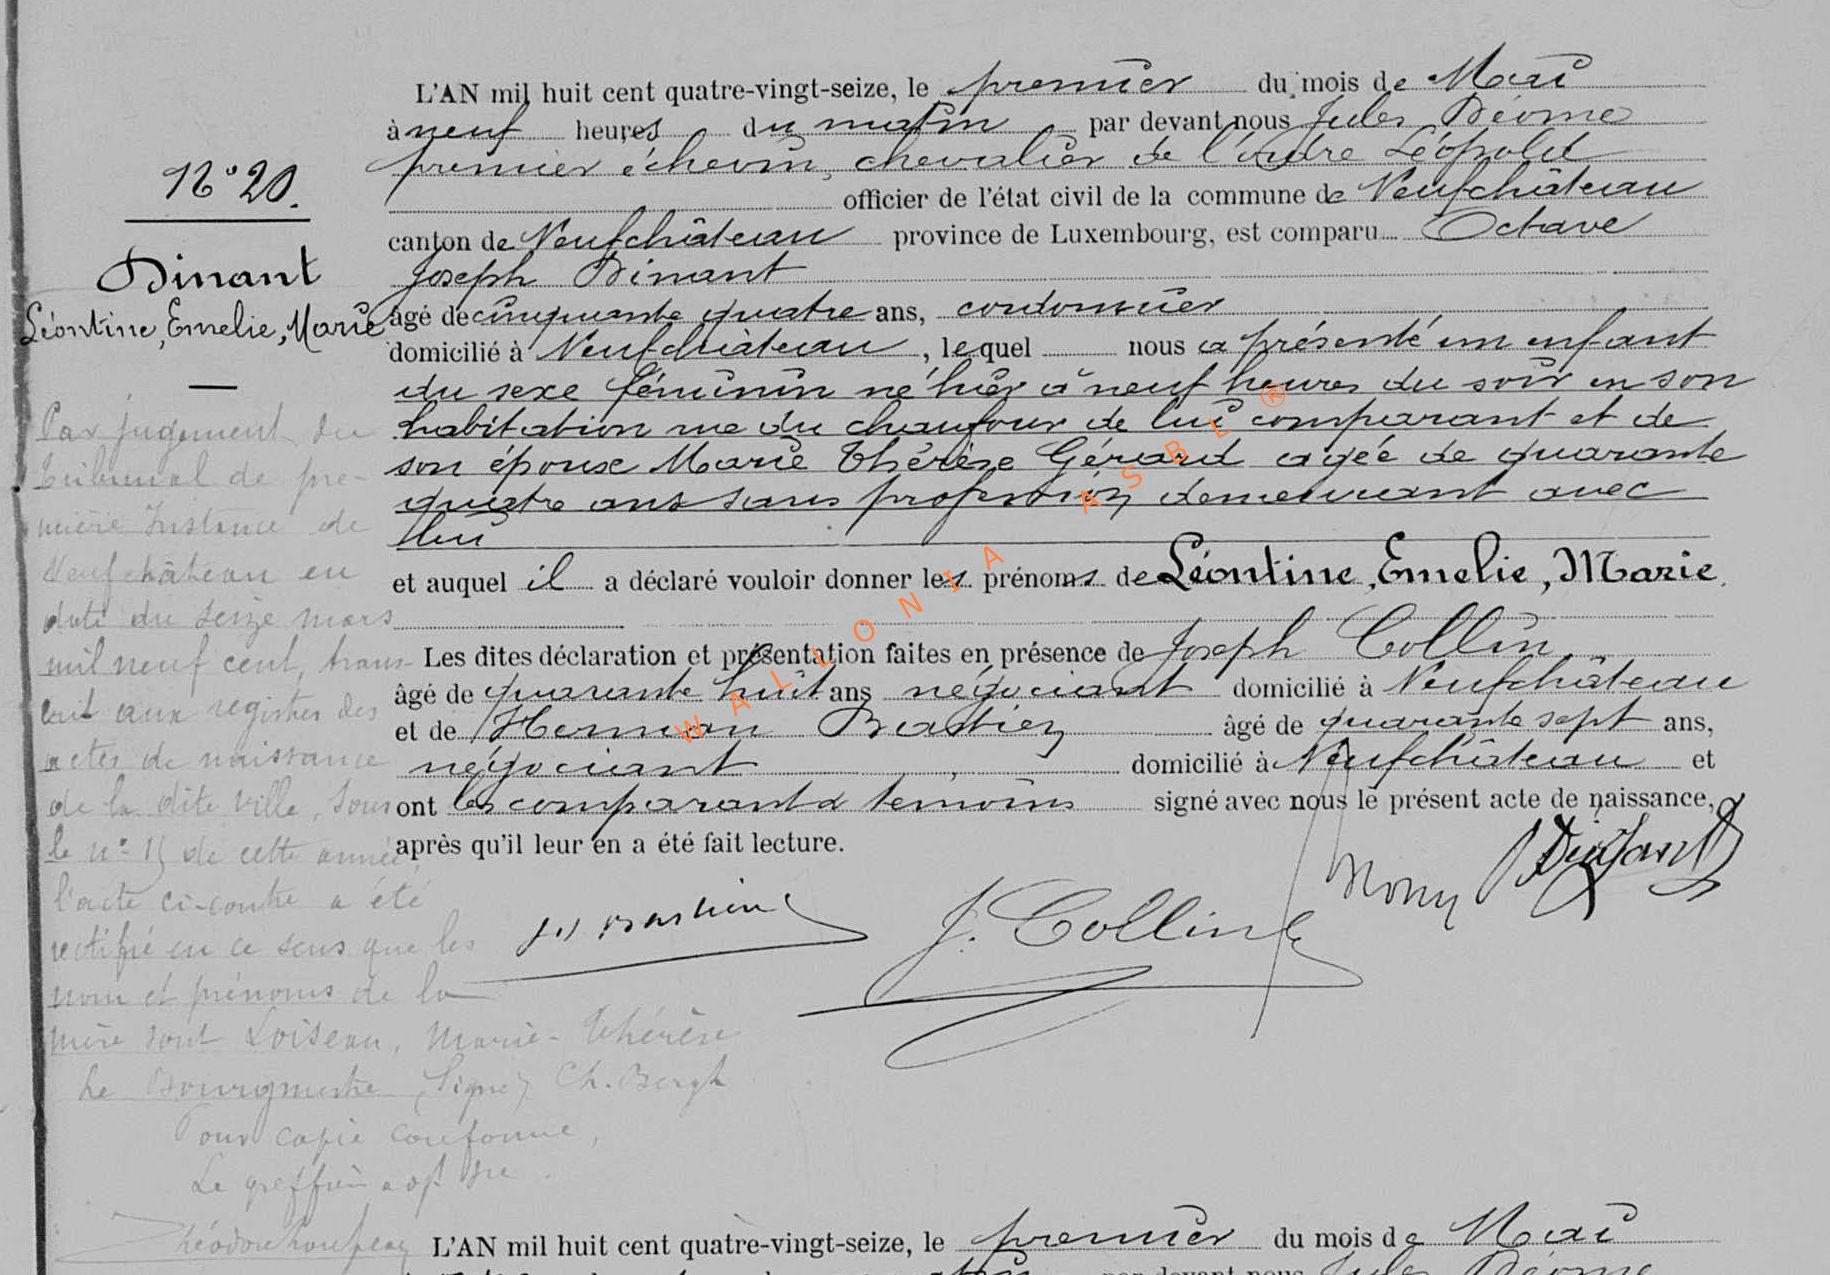 L'AN mil huit cent quatre-vingt-seize, le premier du mois de Mai
à neuf heures du matin par devant nous Jules Déome
premier échevin, chevalier de l'ordre Léopold
officier de l'état civil de la commune de Neufchâteau
canton de Neufchâteau province de Luxembourg, est comparu Octave
Joseph Dinant
âgé de cinquante quatre ans, cordonnier
domicilié à Neufchâteau, lequel nous a présenté un enfant
du sexe féminin né hier à neuf heures du soir en son
habitation rue du chaufour de lui comparant et de
son épouse Marie Thérèse Gérard agée de quarante
quatre ans sans profession demeurant avec
lui
et auquel il a déclaré vouloir donner les prénoms de Léontine, Emelie, Marie.
Les dites déclaration et présentation faites en présence de Joseph Collin
âgé de quarante huit ans négociant domicilié à Neufchâteau
et de Herman Bastien âgé de quarante sept ans,
négociant domicilié à Neufchâteau et
ont les comparant & temoins signé avec nous le présent acte de naissance,
après qu'il leur en a été fait lecture.
Dinant
H Bastien
J. Collin
N° 20.
Dinant
Léontine, Emelie, Marie
Par jugement du
tribunal de pre-
mière Instance de
Neufchâteau en
date du seize mars
mil neuf cent, trans-
crit aux registres des
actes de naissance
de la dite ville, sous
le n° 15 de cette année,
l'acte ci-contre a été
rectifié en ce sens que les
nom et prénoms de la
mère sont Loiseau, Marie-Thérèse
Le Bourgmestre (Signé) Ch. Bergh
Pour copie conforme,
Le greffier
WALLONIA ASBL ®
L'AN mil huit cent quatre-vingt-seize, le premier du mois de Mai
par devant nous Jules Déome